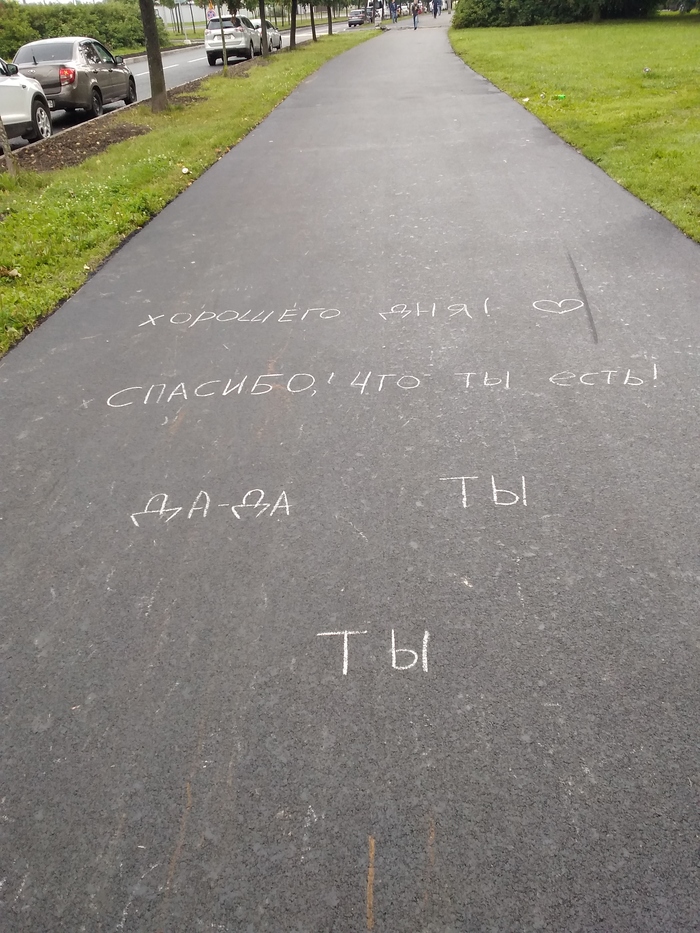 ХОРОШЕГО ДНЯ! ♡
СПАСИБО,! ЧТО ТЫ есть!
ДА-ДА ТЫ
ТЫ